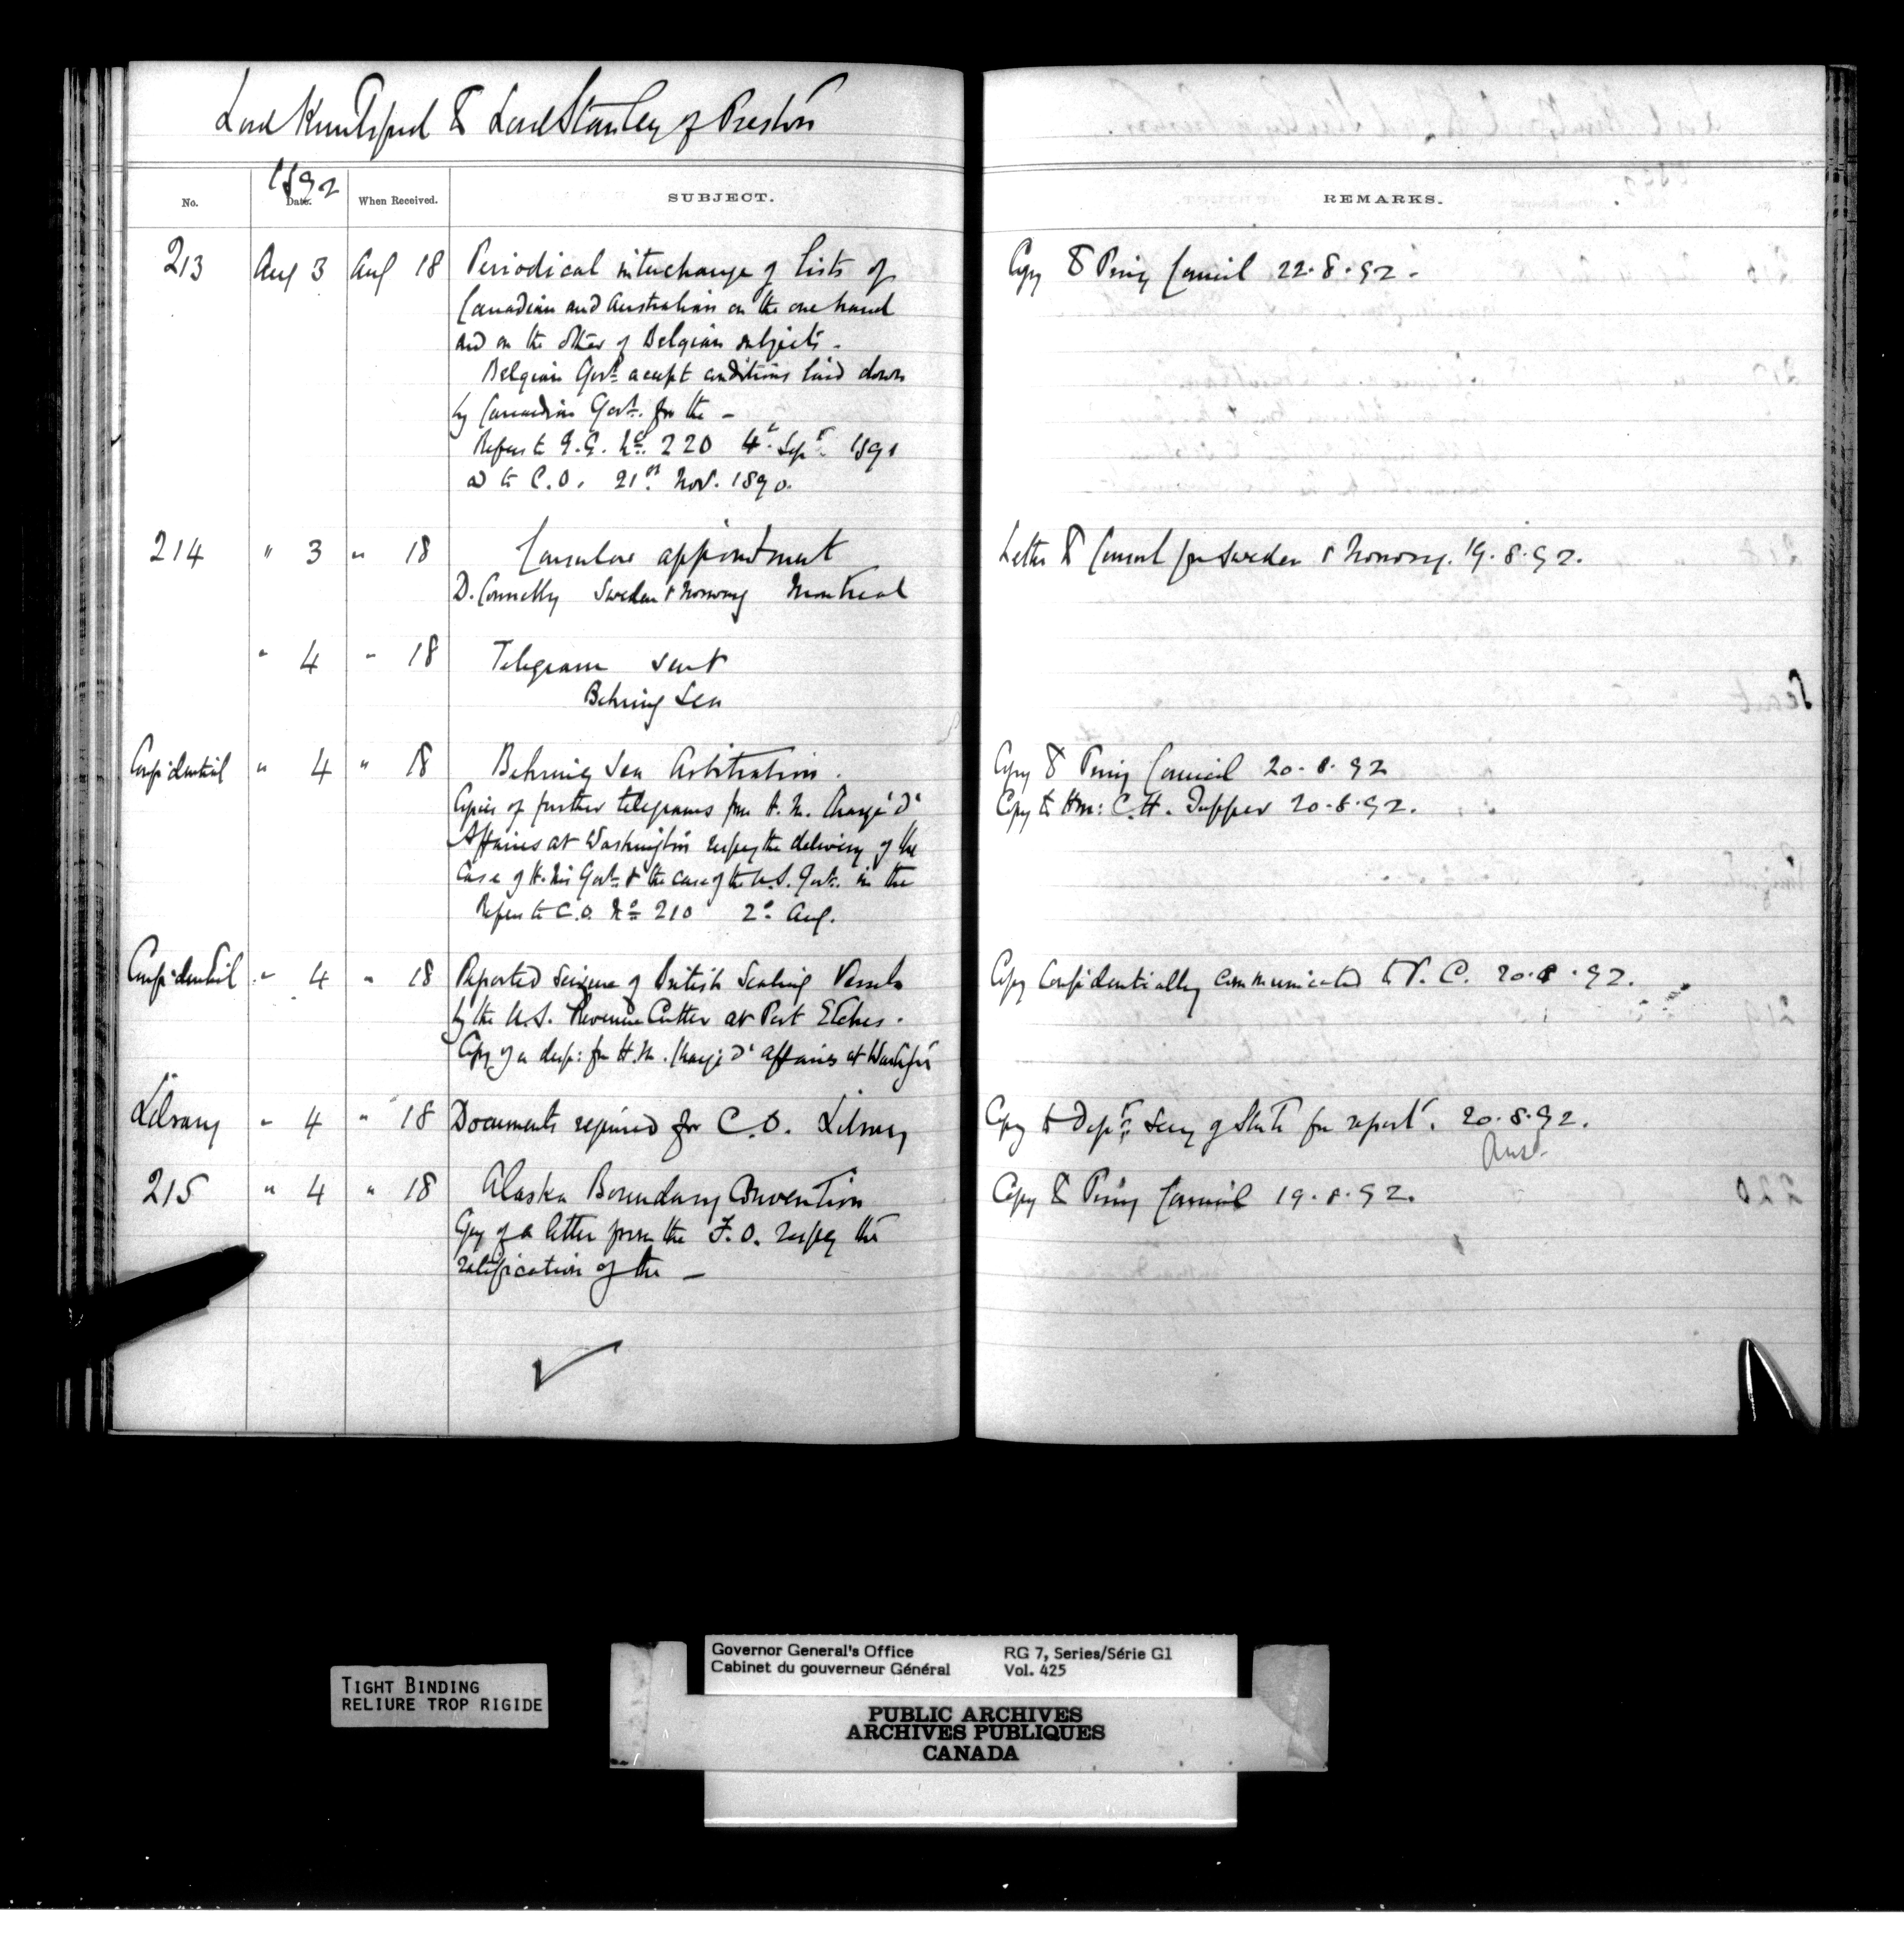 Lord Knutsford to Lord Stanley of Preston
1892
No. Date. When Received. SUBJECT. REMARKS.
213 Aug 3 Aug 18 Periodical interchange of lists of Copy to Privy Council 22.8.92.
Canadian and Australian on the one hand
and on the other of Belgian subjects.
Belgian Govt. accept conditions laid down
by Canadian Govt. for the —
Refers to G.G. No. 220 4th Sept. 1891
& to C.O. 21st Nov. 1890.
214 " 3 " 18 Consular appointment Letter to Consul for Sweden & Norway. 19.8.92.
D. Connelly Sweden & Norway Montreal
" 4 " 18 Telegram sent
Behring Sea
Confidential " 4 " 18 Behring Sea Arbitration. Copy to Privy Council 20.8.92
Copies of further telegrams from H.M. Chargé d' Copy to Hon: C.H. Tupper 20.8.92.
Affaires at Washington respg the delivery of the
Case of H.M's Govt. & the case of the U.S. Govt. in the
Refers to C.O. No. 210 2d Aug.
Confidential " 4 " 18 Reported seizure of British Sealing Vessels Copy Confidentially communicated to P.C. 20.8.92.
by the U.S. Revenue Cutter at Port Etches.
Copy of a desp: fm H.M. Chargé d' affaires at Washgtn
Library " 4 " 18 Documents required for C.O. Library Copy to Dept. Secy of State for report. 20.8.92.
Ansd.
215 " 4 " 18 Alaska Boundary Convention Copy to Privy Council 19.8.92.
Copy of a letter from the F.O. respg the
ratification of the —
TIGHT BINDING
RELIURE TROP RIGIDE
Governor General's Office RG 7, Series/Série G1
Cabinet du gouverneur Général Vol. 425
PUBLIC ARCHIVES
ARCHIVES PUBLIQUES
CANADA